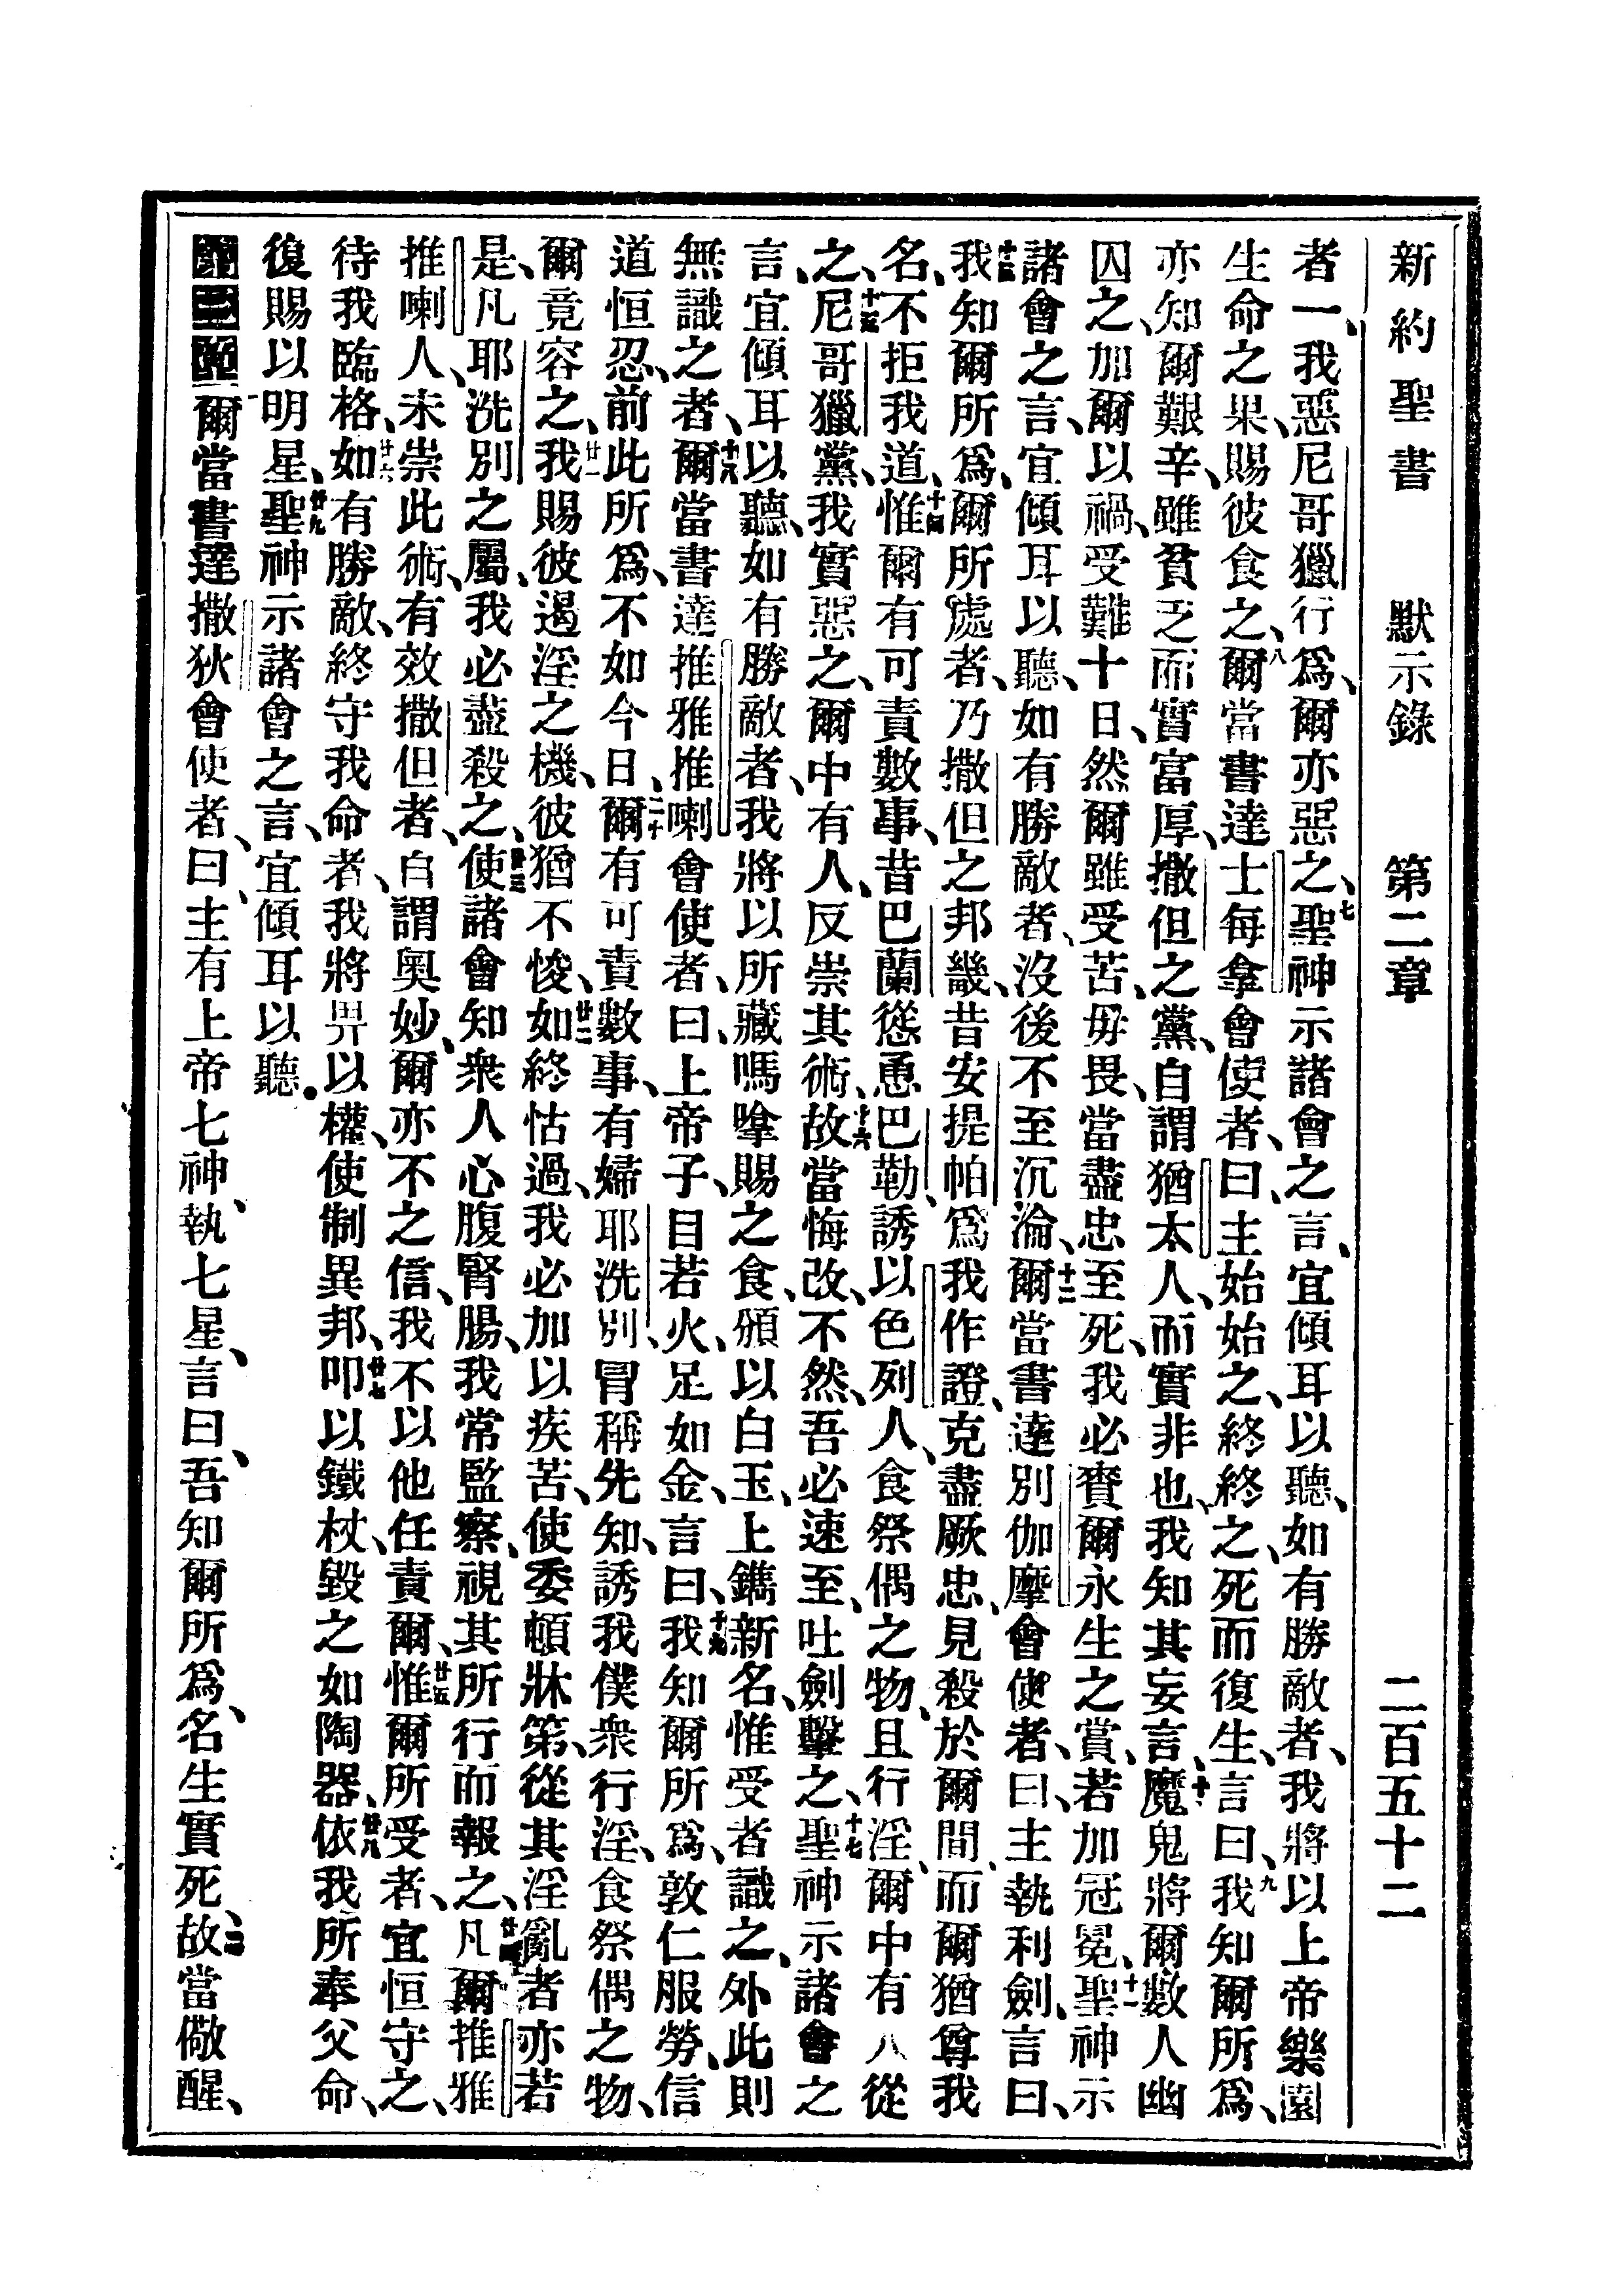 新約聖書 默示錄 第二章 二百五十二
者一、我惡尼哥獵行爲、爾亦惡之、七聖神示諸會之言、宜傾耳以聽、如有勝敵者、我將以上帝樂園
生命之果、賜彼食之、八爾當書達士每拿會使者、曰、主始始之、終終之、死而復生、言曰、九我知爾所爲、
亦知爾艱辛、雖貧乏而實富厚、撒但之黨、自謂猶太人、而實非也、我知其妄言、十魔鬼將爾數人幽
囚之、加爾以禍、受難十日、然爾雖受苦、毋畏、當盡忠至死、我必賚爾永生之賞、若加冠冕、十一聖神示
諸會之言、宜傾耳以聽、如有勝敵者、沒後不至沉淪、十二爾當書達別伽摩會使者、曰、主執利劍、言曰、
十三我知爾所爲、爾所處者、乃撒但之邦畿、昔安提帕爲我作證、克盡厥忠、見殺於爾間、而爾猶尊我
名、不拒我道、十四惟爾有可責數事、昔巴蘭慫恿巴勒、誘以色列人、食祭偶之物、且行淫、爾中有人從
之、十五尼哥獵黨、我實惡之、爾中有人、反崇其術、十六故當悔改、不然、吾必速至、吐劍擊之、十七聖神示諸會之
言、宜傾耳以聽、如有勝敵者、我將以所藏嗎嗱賜之食、頒以白玉、上鐫新名、惟受者識之、外此則
無識之者、十八爾當書達推雅推喇會使者、曰、上帝子、目若火、足如金、言曰、十九我知爾所爲、敦仁服勞、信
道恒忍、前此所爲、不如今日、二十爾有可責數事、有婦耶洗別、冒稱先知、誘我僕衆行淫、食祭偶之物、
爾竟容之、廿一我賜彼遏淫之機、彼猶不悛、廿二如終怙過、我必加以疾苦、使委頓牀笫、從其淫亂者亦若
是、凡耶洗別之屬、我必盡殺之、廿三使諸會知衆人心腹腎腸、我常監察、視其所行而報之、廿四凡爾推雅
推喇人、未崇此術、有效撒但者、自謂奧妙、爾亦不之信、我不以他任責爾、廿五惟爾所受者、宜恒守之、
待我臨格、廿六如有勝敵、終守我命者、我將畀以權、使制異邦、廿七叩以鐵杖、毀之如陶器、廿八依我所奉父命、
復賜以明星、廿九聖神示諸會之言、宜傾耳以聽。
第三章 一爾當書達撒狄會使者、曰、主有上帝七神、執七星、言曰、吾知爾所爲、名生實死、二故當儆醒、